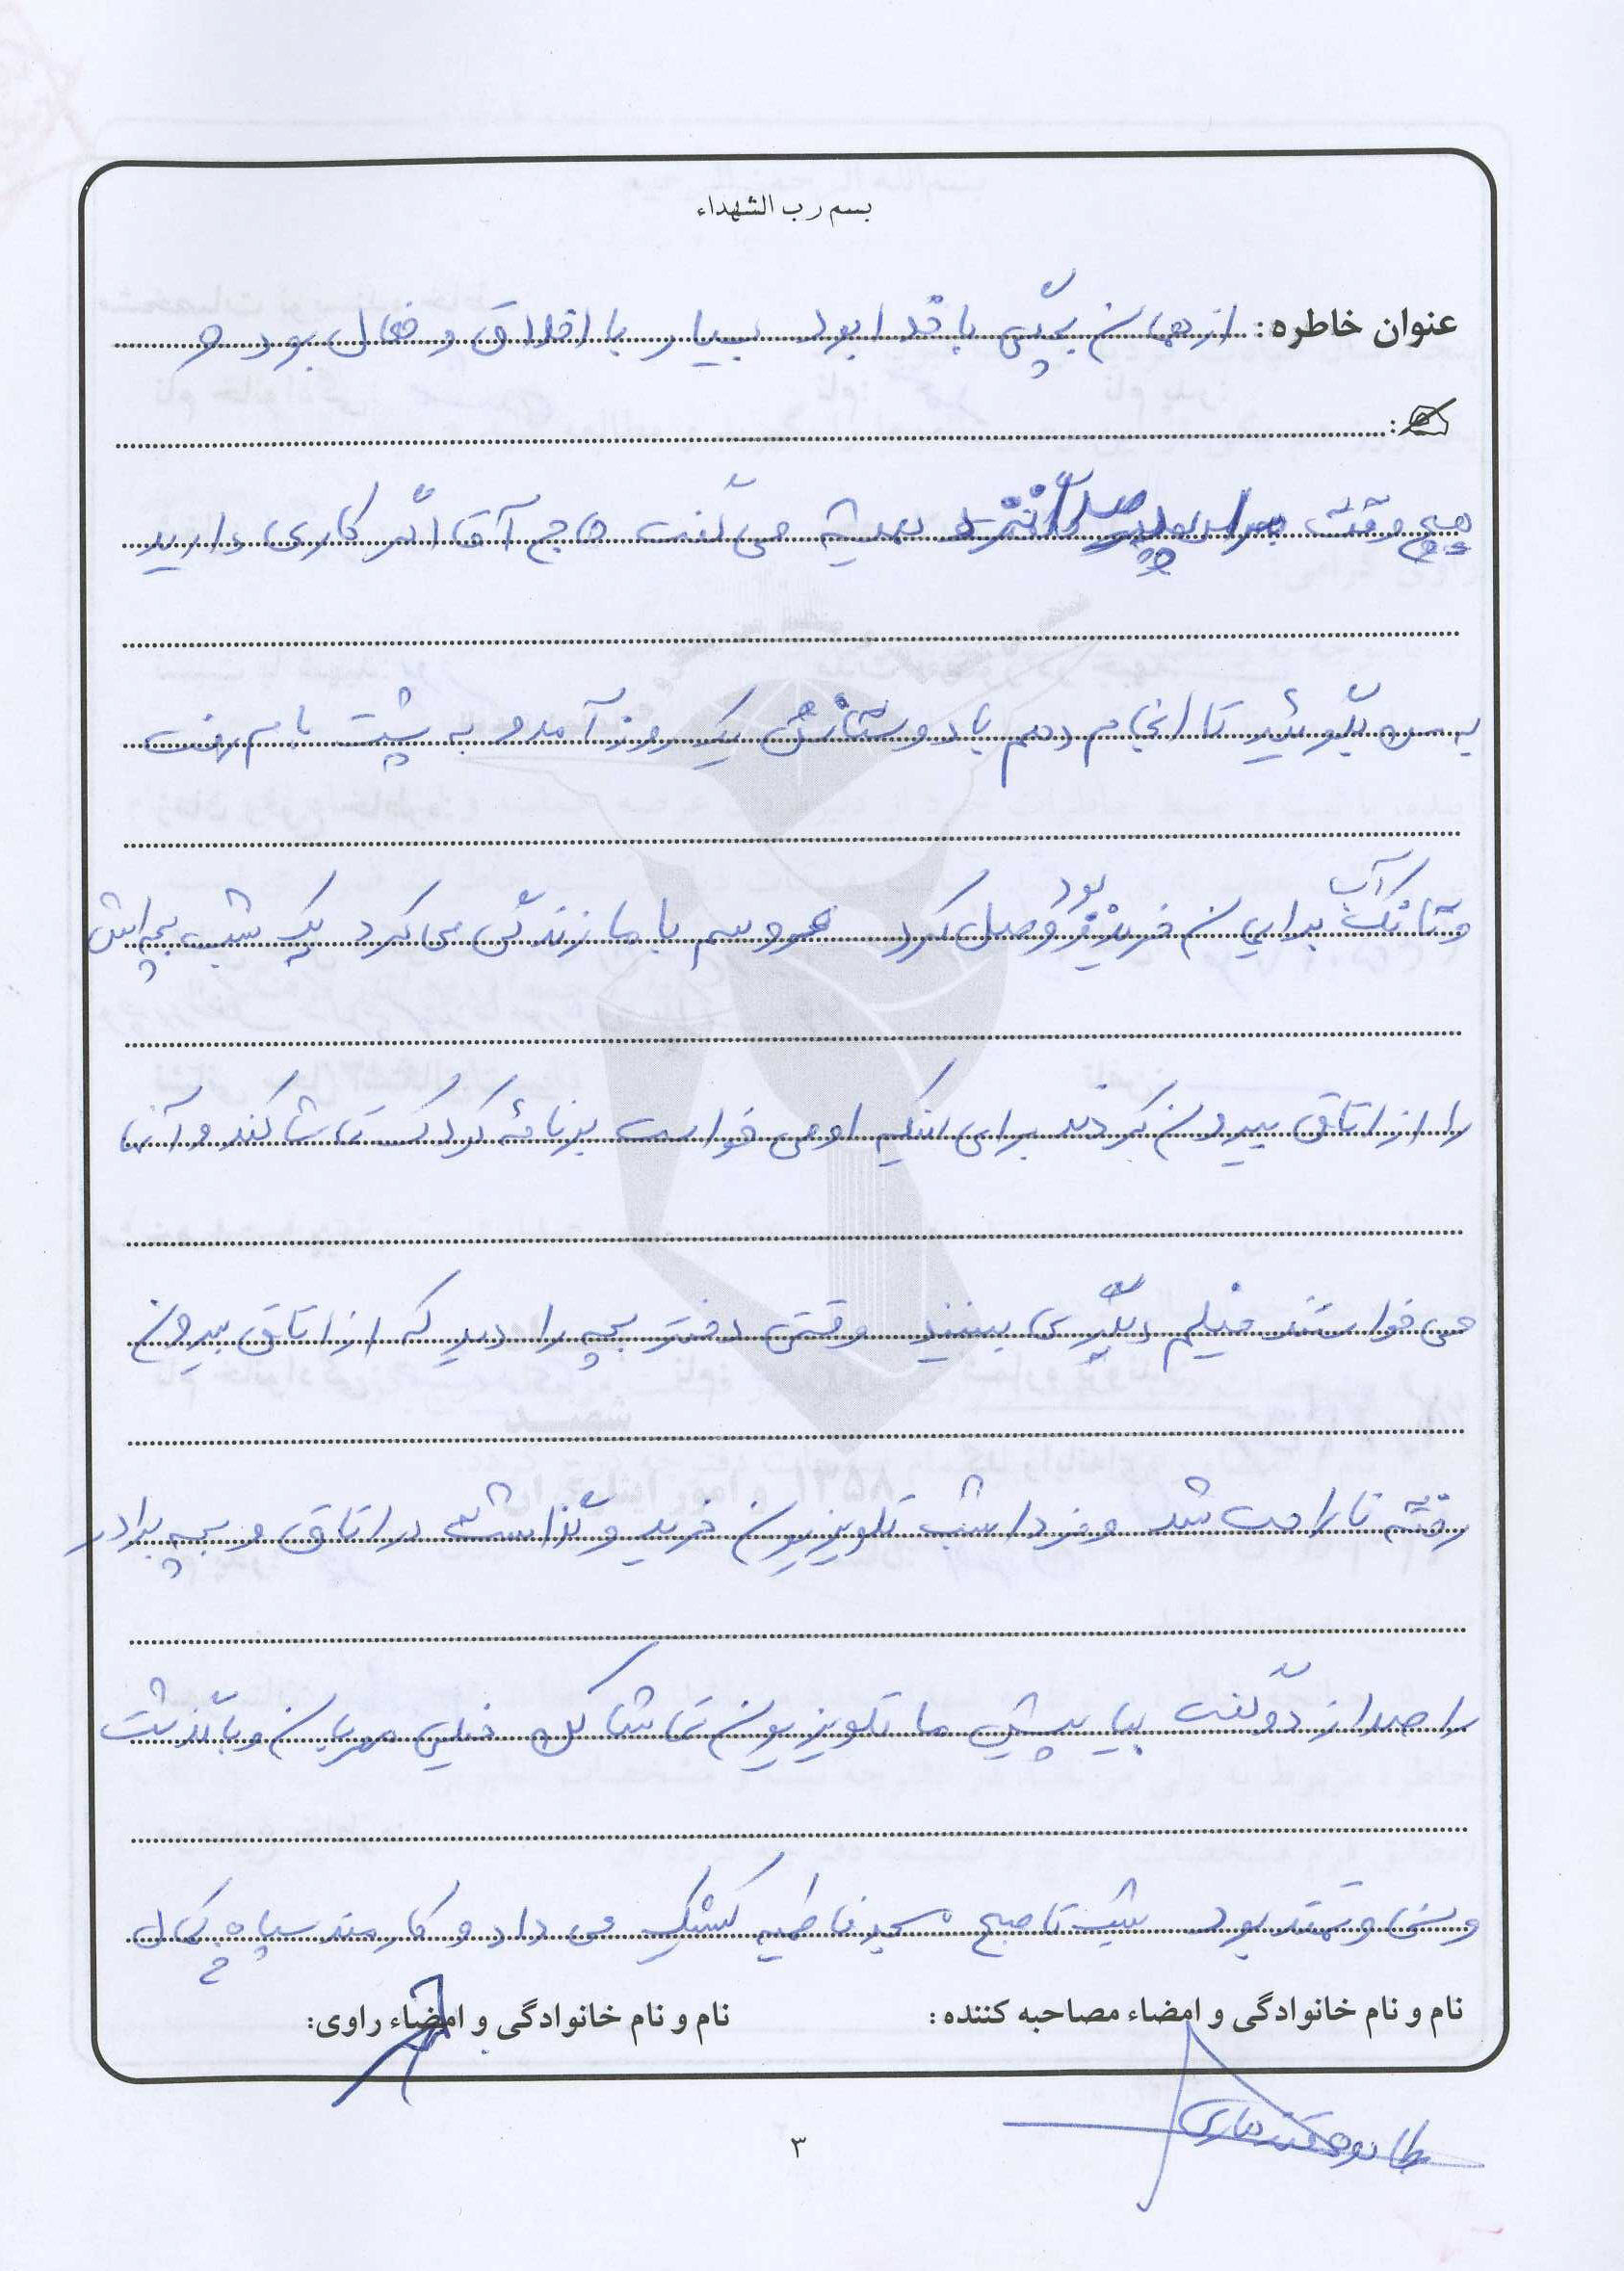 بسم رب الشهداء
عنوان خاطره: از همان بچگی با خدا بود بسیار با اخلاق و فعال بود و
هیچ وقت صدا نزد همیشه می گفت حاج آقا اگر کاری دارید
به من بگوئید تا انجام دهم با دوستانش یک روز آمد و به پشت بام رفت
و تانک آب برایمان خریده بود وصل کرد عروسم با ما زندگی می کرد یک شب بچه اش
را از اتاق بیرون کردند برای اینکه او می خواست برنامه کودک تماشا کند و آنها
می خواستند فیلم دیگری ببینند وقتی دختر بچه را دید که از اتاق بیرون
رفته ناراحت شد و فردا شب تلویزیون خرید و گذاشت در اتاق و بچه برادر
را صدا زد و گفت بیا پیش ما تلویزیون تماشا کن خیلی مهربان و باگذشت
و سخاوتمند بود شب تا صبح مسجد فاطمیه کشیک می داد و کارمند سپاه
نام و نام خانوادگی و امضاء مصاحبه کننده: نام و نام خانوادگی و امضاء راوی:
۳